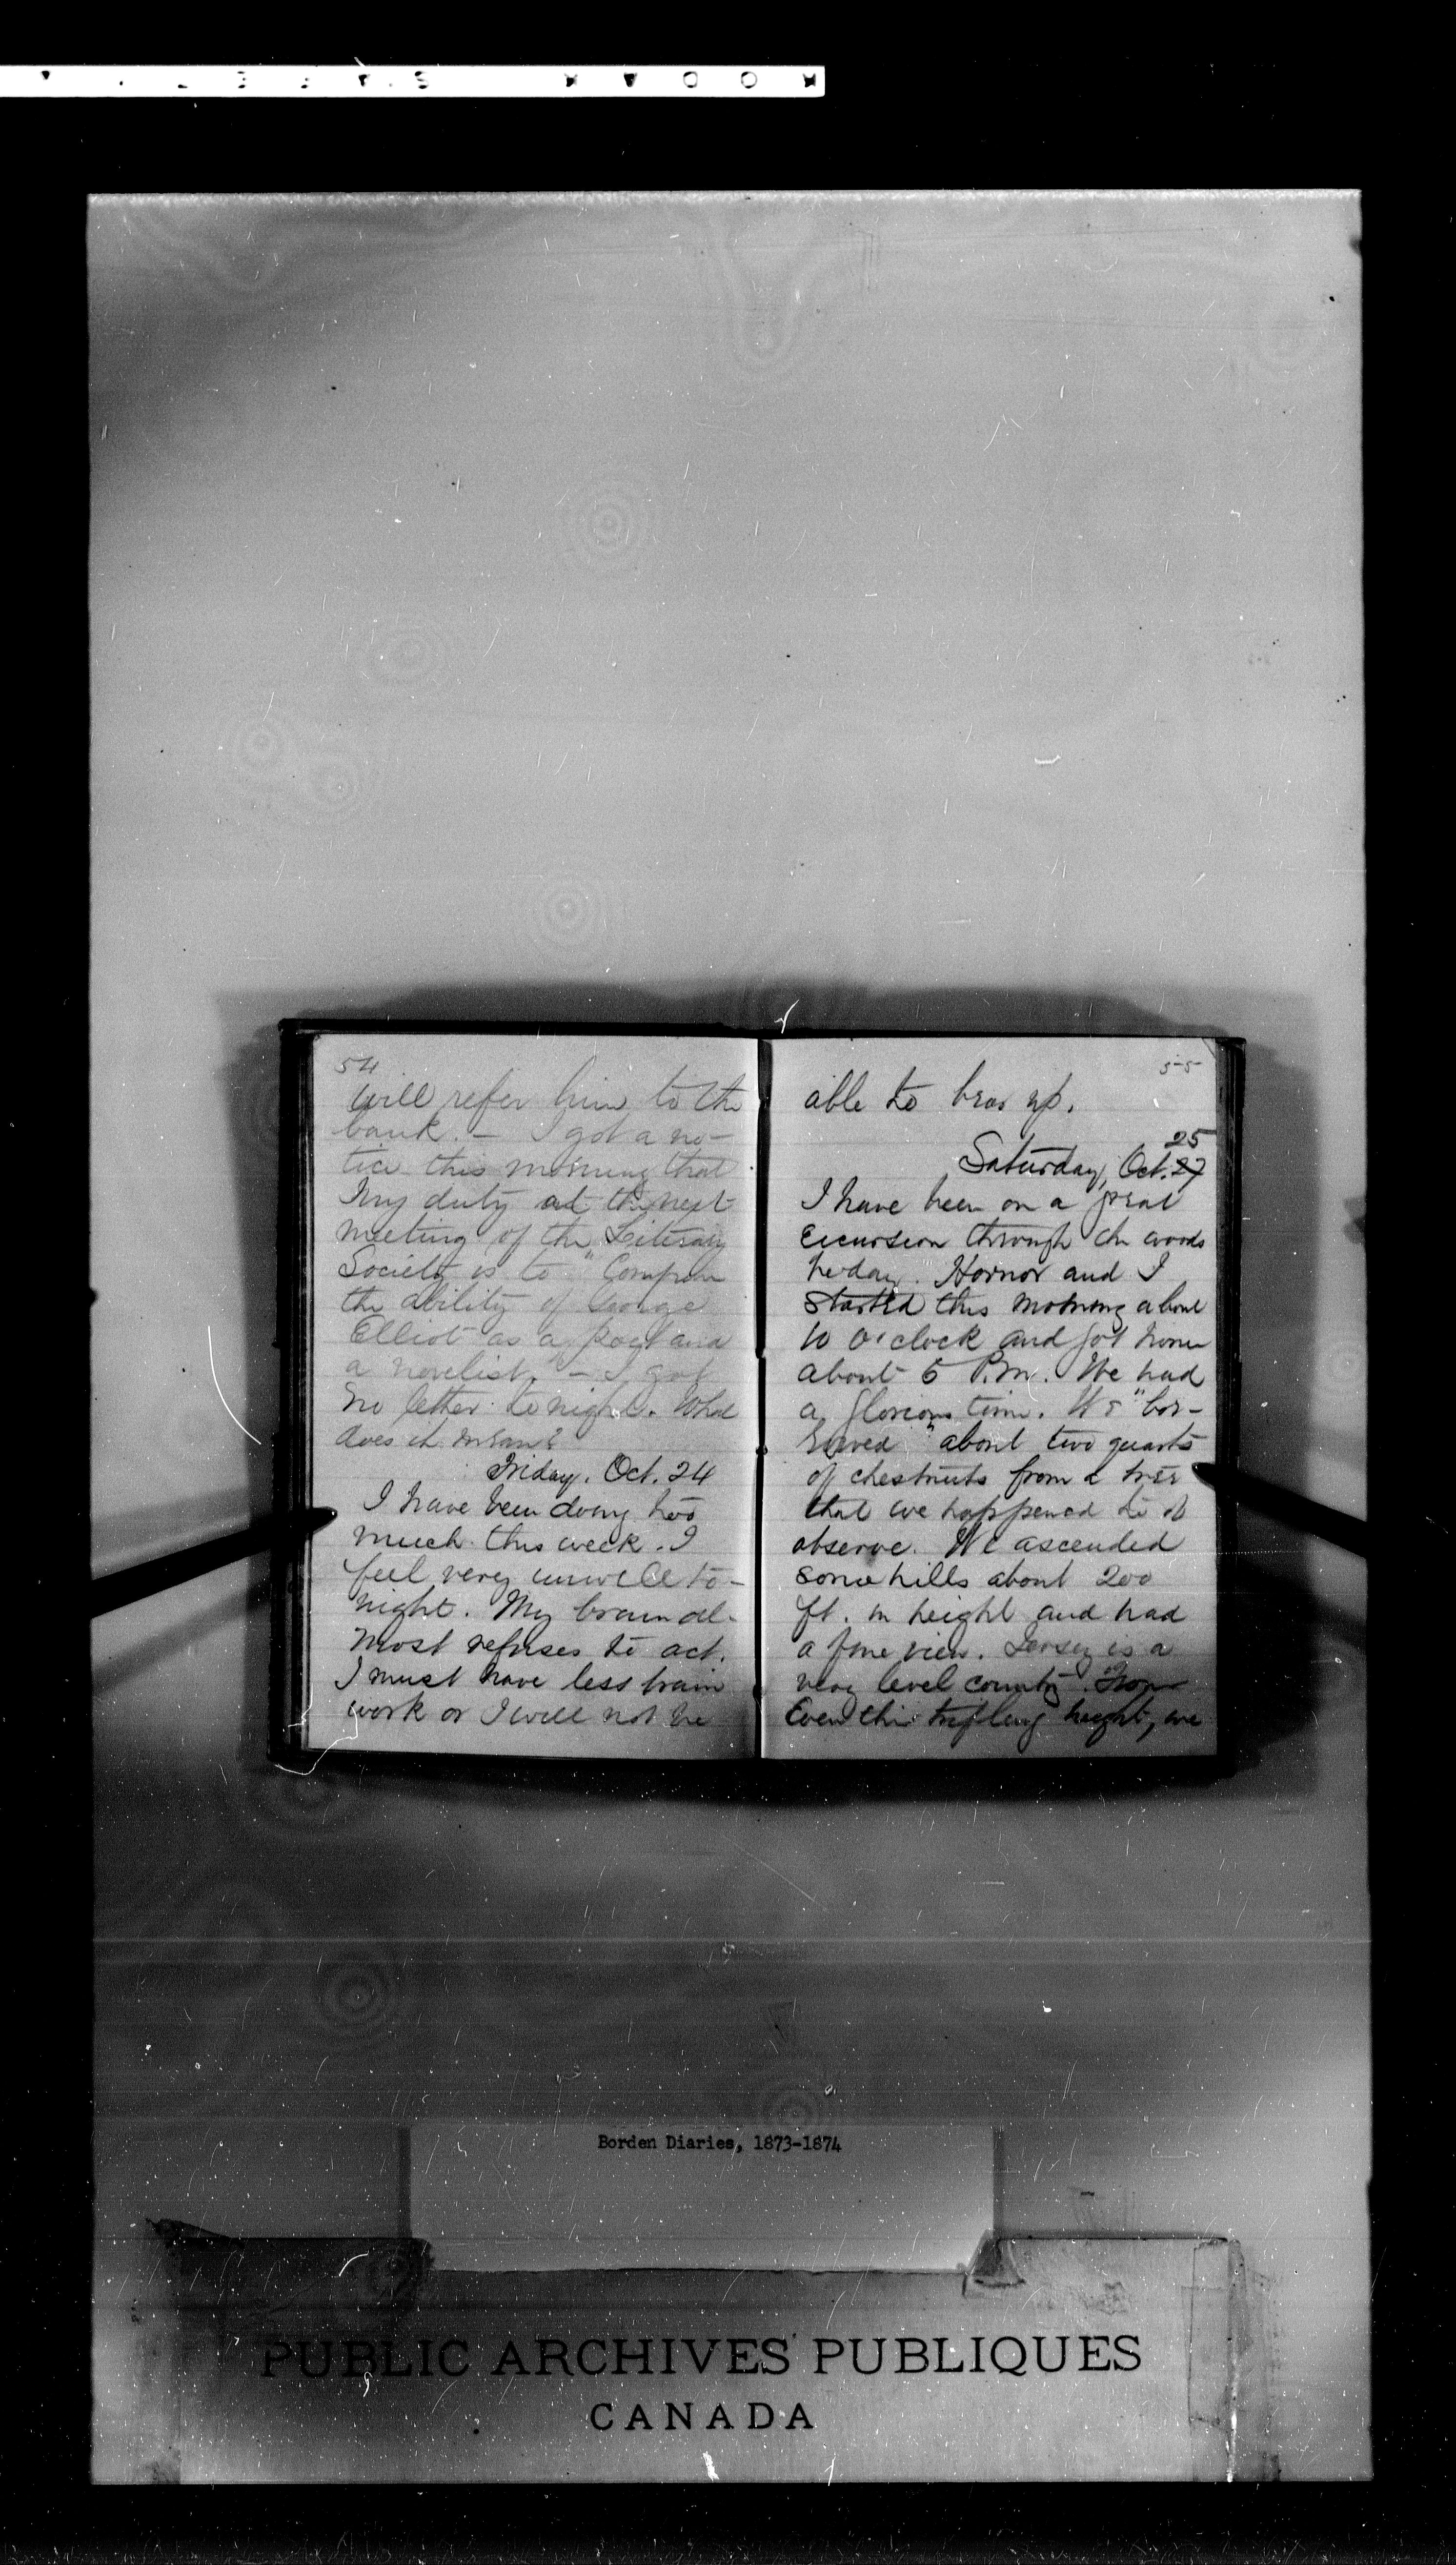 54
will refer him to the
bank. — I got a no-
tice this morning that
my duty at the next
meeting of the Literary
Society is to "Compare
the ability of George
Elliot as a poet and
a novelist." — I got
no letter to night. What
does it mean?
Friday. Oct. 24
I have been doing too
much this week. I
feel very unwell to-
night. My brain al-
most refuses to act.
I must have less brain
work or I will not be
55
able to bear up.
25
Saturday, Oct. 27
I have been on a great
excursion through the woods
to-day. Hornor and I
started this morning about
10 o'clock and got home
about 5 P.M. We had
a glorious time. We "bor-
rowed" about two quarts
of chestnuts from a tree
that we happened to
observe. We ascended
some hills about 200
ft. in height and had
a fine view. Jersey is a
very level country. From
Even this trifling height, we
Borden Diaries, 1873-1874
PUBLIC ARCHIVES PUBLIQUES
CANADA